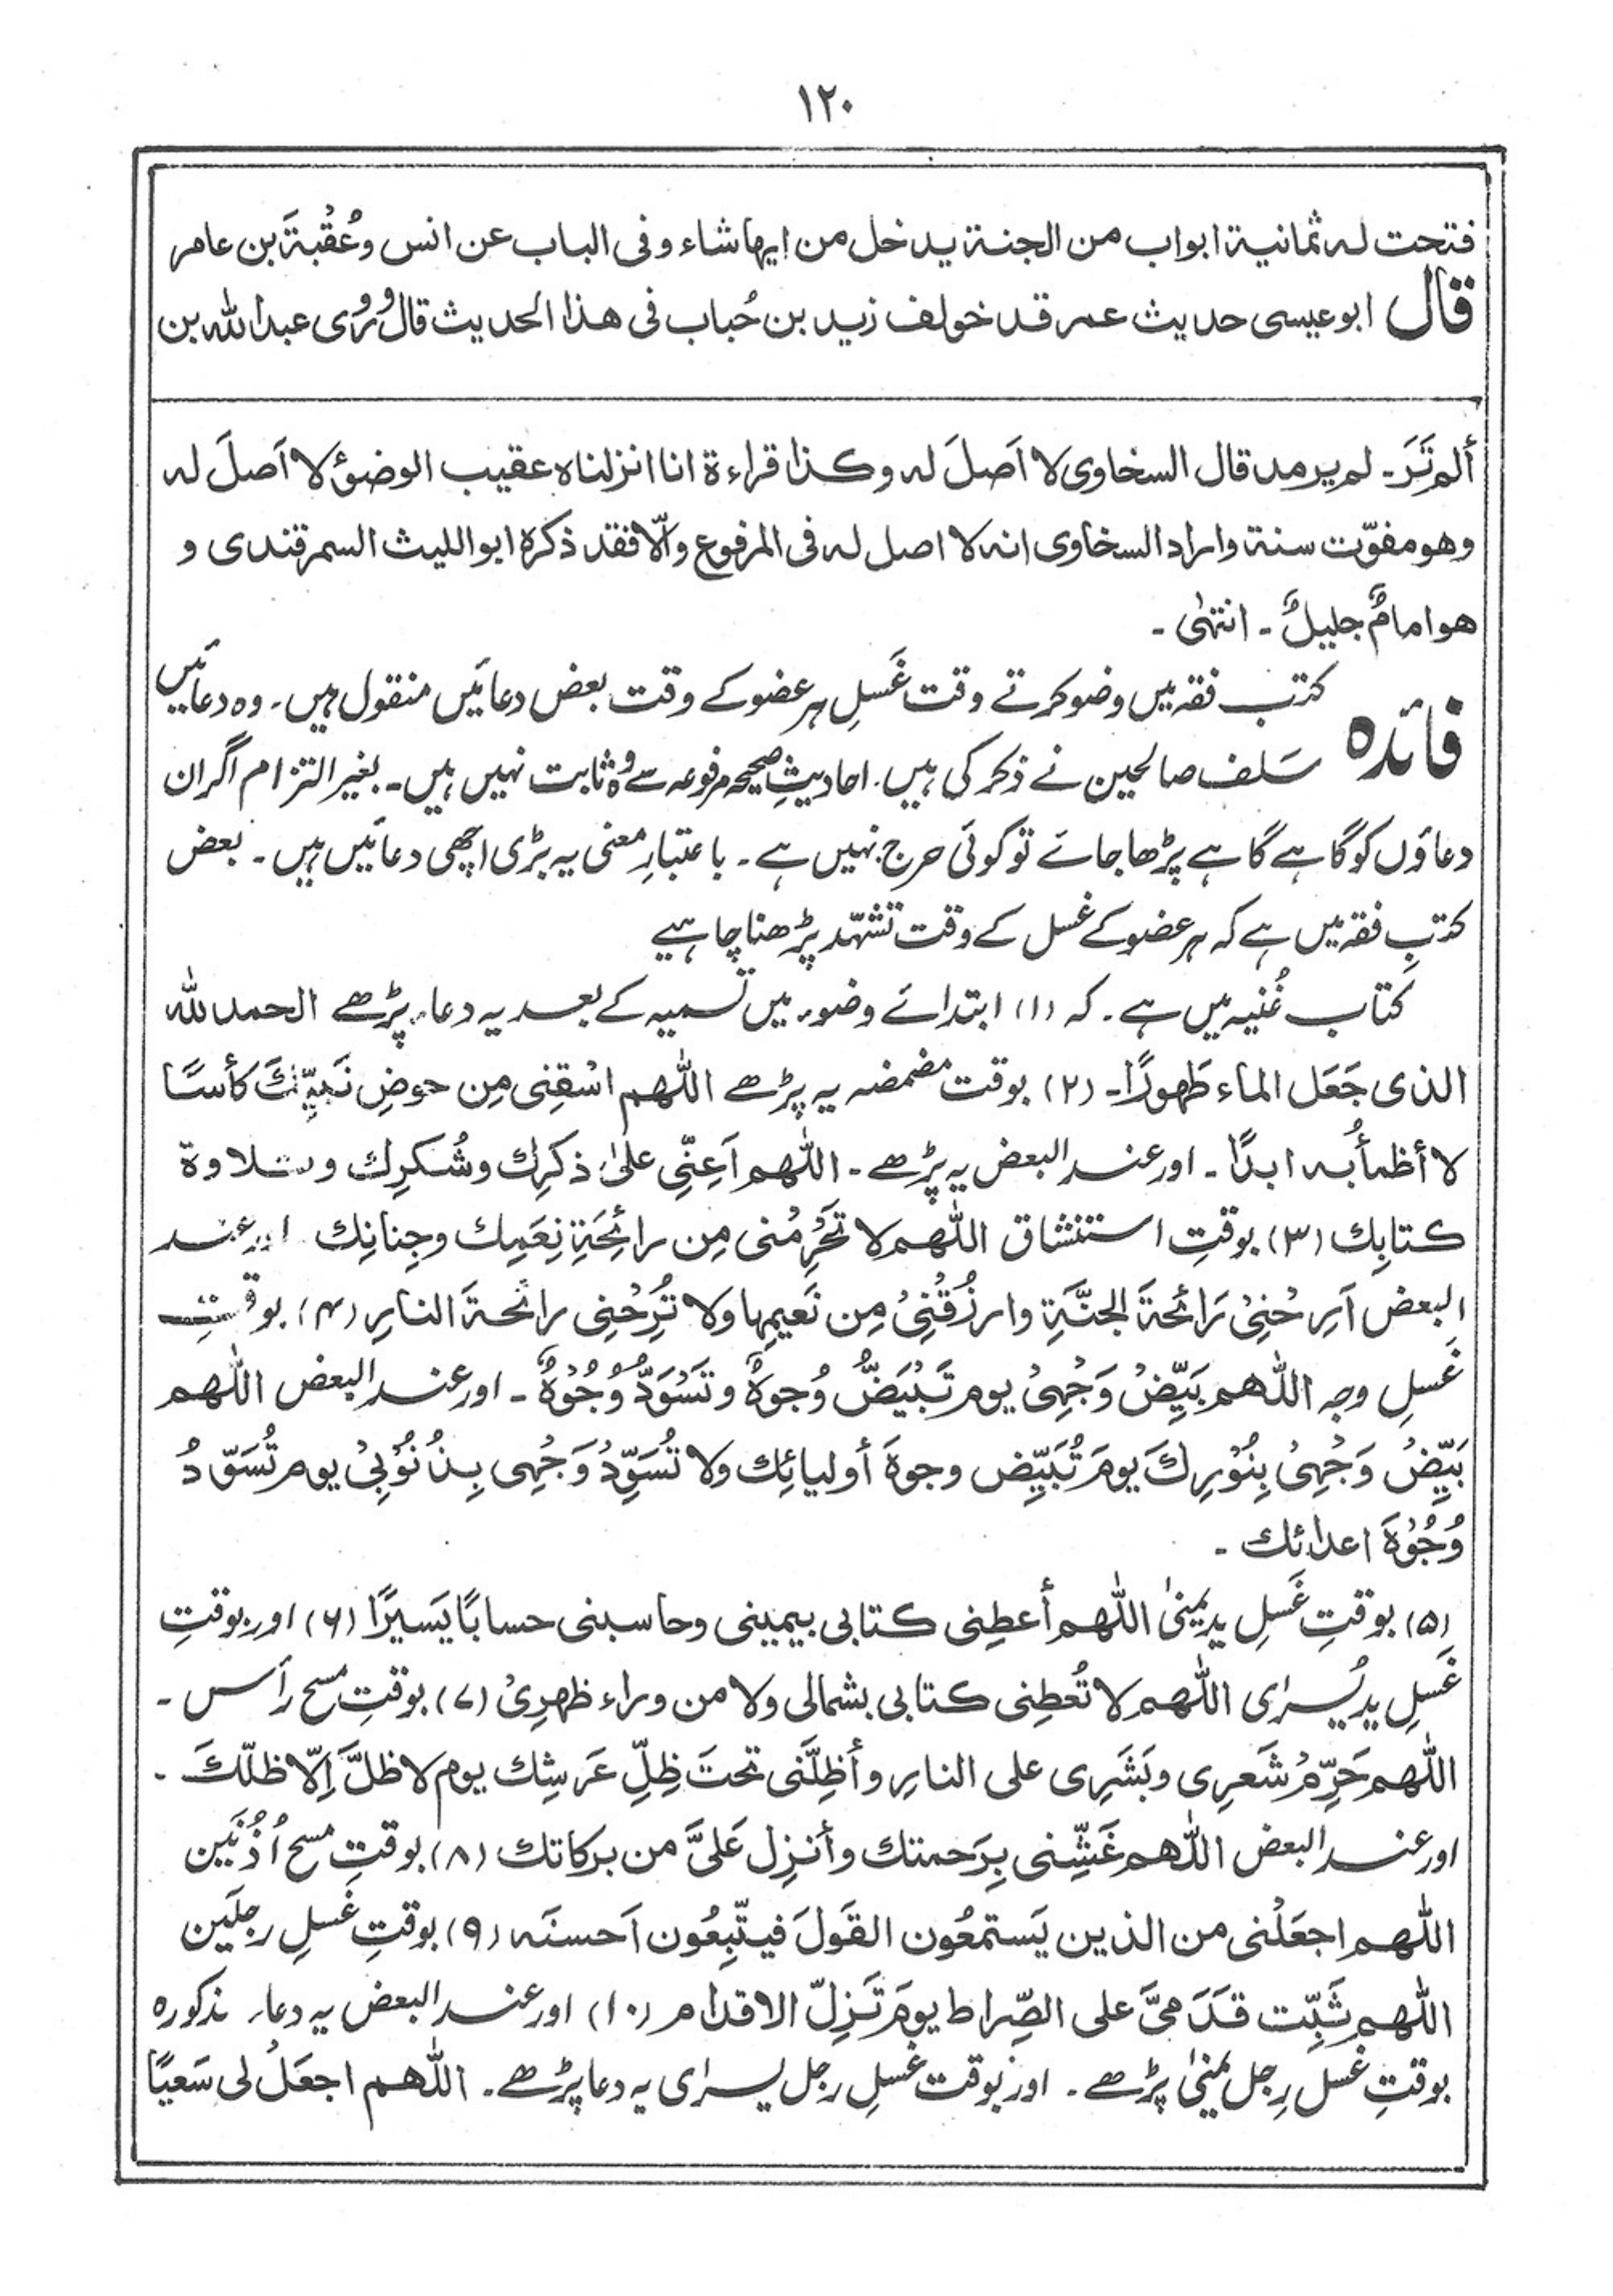 ۱۲۰
فتحت له ثمانیة ابواب من الجنة یدخل من ایها شاء وفی الباب عن انس وعُقْبةَ بن عامر
قال ابوعیسی حدیث عمر قد خولف زید بن حُباب فی هذا الحدیث قال ورُوِی عبدالله بن
ألم تَرَ۔ لم یرمد قال السخاوی لا اَصلَ له وکذا قراءة انا انزلناه عقیب الوضوٴ لا اَصلَ له
وهو مفوّت سنة واراد السخاوی انه لا اصل له فی المرفوع والّا فقد ذکره ابواللیث السمرقندی و
هو امامٌ جلیلٌ۔ انتهٰی۔
فائدہ کتب فقہ میں وضو کرتے وقت غَسلِ ہر عضو کے وقت بعض دعائیں منقول ہیں۔ وہ دعائیں
سَلف صالحین نے ذکر کی ہیں۔ احادیثِ صحیحہ مرفوعہ سے وُہ ثابت نہیں ہیں۔ بغیر التزام اگر ان
دعاؤں کو گاہے گاہے پڑھا جائے تو کوئی حرج نہیں ہے۔ باعتبارِ معنی یہ بڑی اچھی دعائیں ہیں۔ بعض
کتبِ فقہ میں ہے کہ ہر عضو کے غسل کے وقت تشہّد پڑھنا چاہیے
کتاب غُنیہ میں ہے۔ کہ (۱) ابتدائے وضوء میں تسمیہ کے بعد یہ دعاء پڑھے الحمد لله
الذی جَعَل الماء طَهورًا۔ (۲) بوقت مضمضہ یہ پڑھے اللّٰهم اسْقِنِی مِن حوضِ نَبِیِّكَ کأسًا
لا أظمأُ بہ ابدًا۔ اور عند البعض یہ پڑھے۔ اللّٰهم اَعِنِّی علیٰ ذکرِك وشُکرِك وتلاوة
کتابِك (۳) بوقتِ استنشاق اللّٰهم لا تَحْرِمْنی مِن رائِحَةِ نِعَمِك وجِنانِك اور عند
البعض اَرِحْنِیْ رَائحةَ الجنَّةِ وارزُقْنِیْ مِن نَعیمِها ولا تُرِحْنِی رائحةَ النارِ (۴) بوقتِ
غَسلِ وجہ اللّٰهم بَیِّضْ وَجْهِیْ یوم تَبْیَضُّ وُجوهٌ وتَسْوَدُّ وُجُوْهٌ۔ اور عند البعض اللّٰهم
بَیِّضْ وَجْهِیْ بِنُوْرِكَ یومَ تُبَیِّض وجوهَ أولیائِك ولا تُسَوِّدْ وَجْهِی بِذُنُوْبِیْ یوم تُسَوّدُ
وُجُوْهَ اعدائك۔
(۵) بوقتِ غَسلِ یدِ یمنیٰ اللّٰهم أعطِنِی کتابی بیمینی وحاسبنی حسابًا یَسیرًا (۶) اور بوقتِ
غَسلِ یدِ یُسرٰی اللّٰهم لا تُعطِنی کتابی بشمالی ولا من وراء ظهرِیْ (۷) بوقتِ مسح رأس۔
اللّٰهم حَرِّمْ شَعرِی وبَشَرِی علی النارِ وأظِلَّنی تحتَ ظِلِّ عَرشِك یوم لا ظلَّ اِلّا ظلّكَ۔
اور عند البعض اللّٰهم غَشِّنی بِرَحمتك وأنزِل عَلَیَّ من برکاتك (۸) بوقتِ مسح اُذُنَین
اللّٰهم اجعَلْنی من الذین یَستمعُون القَولَ فیتّبِعُون اَحسنَه (۹) بوقتِ غَسلِ رجلَین
اللّٰهم ثَبِّت قَدَمَیَّ علی الصِّراط یومَ تَزِلّ الاقدام (۱۰) اور عند البعض یہ دعاء مذکورہ
بوقتِ غسل رِجل یمنیٰ پڑھے۔ اور بوقت غسلِ رجل یسرٰی یہ دعا پڑھے۔ اللّٰهم اجعَلْ لی سَعیًا